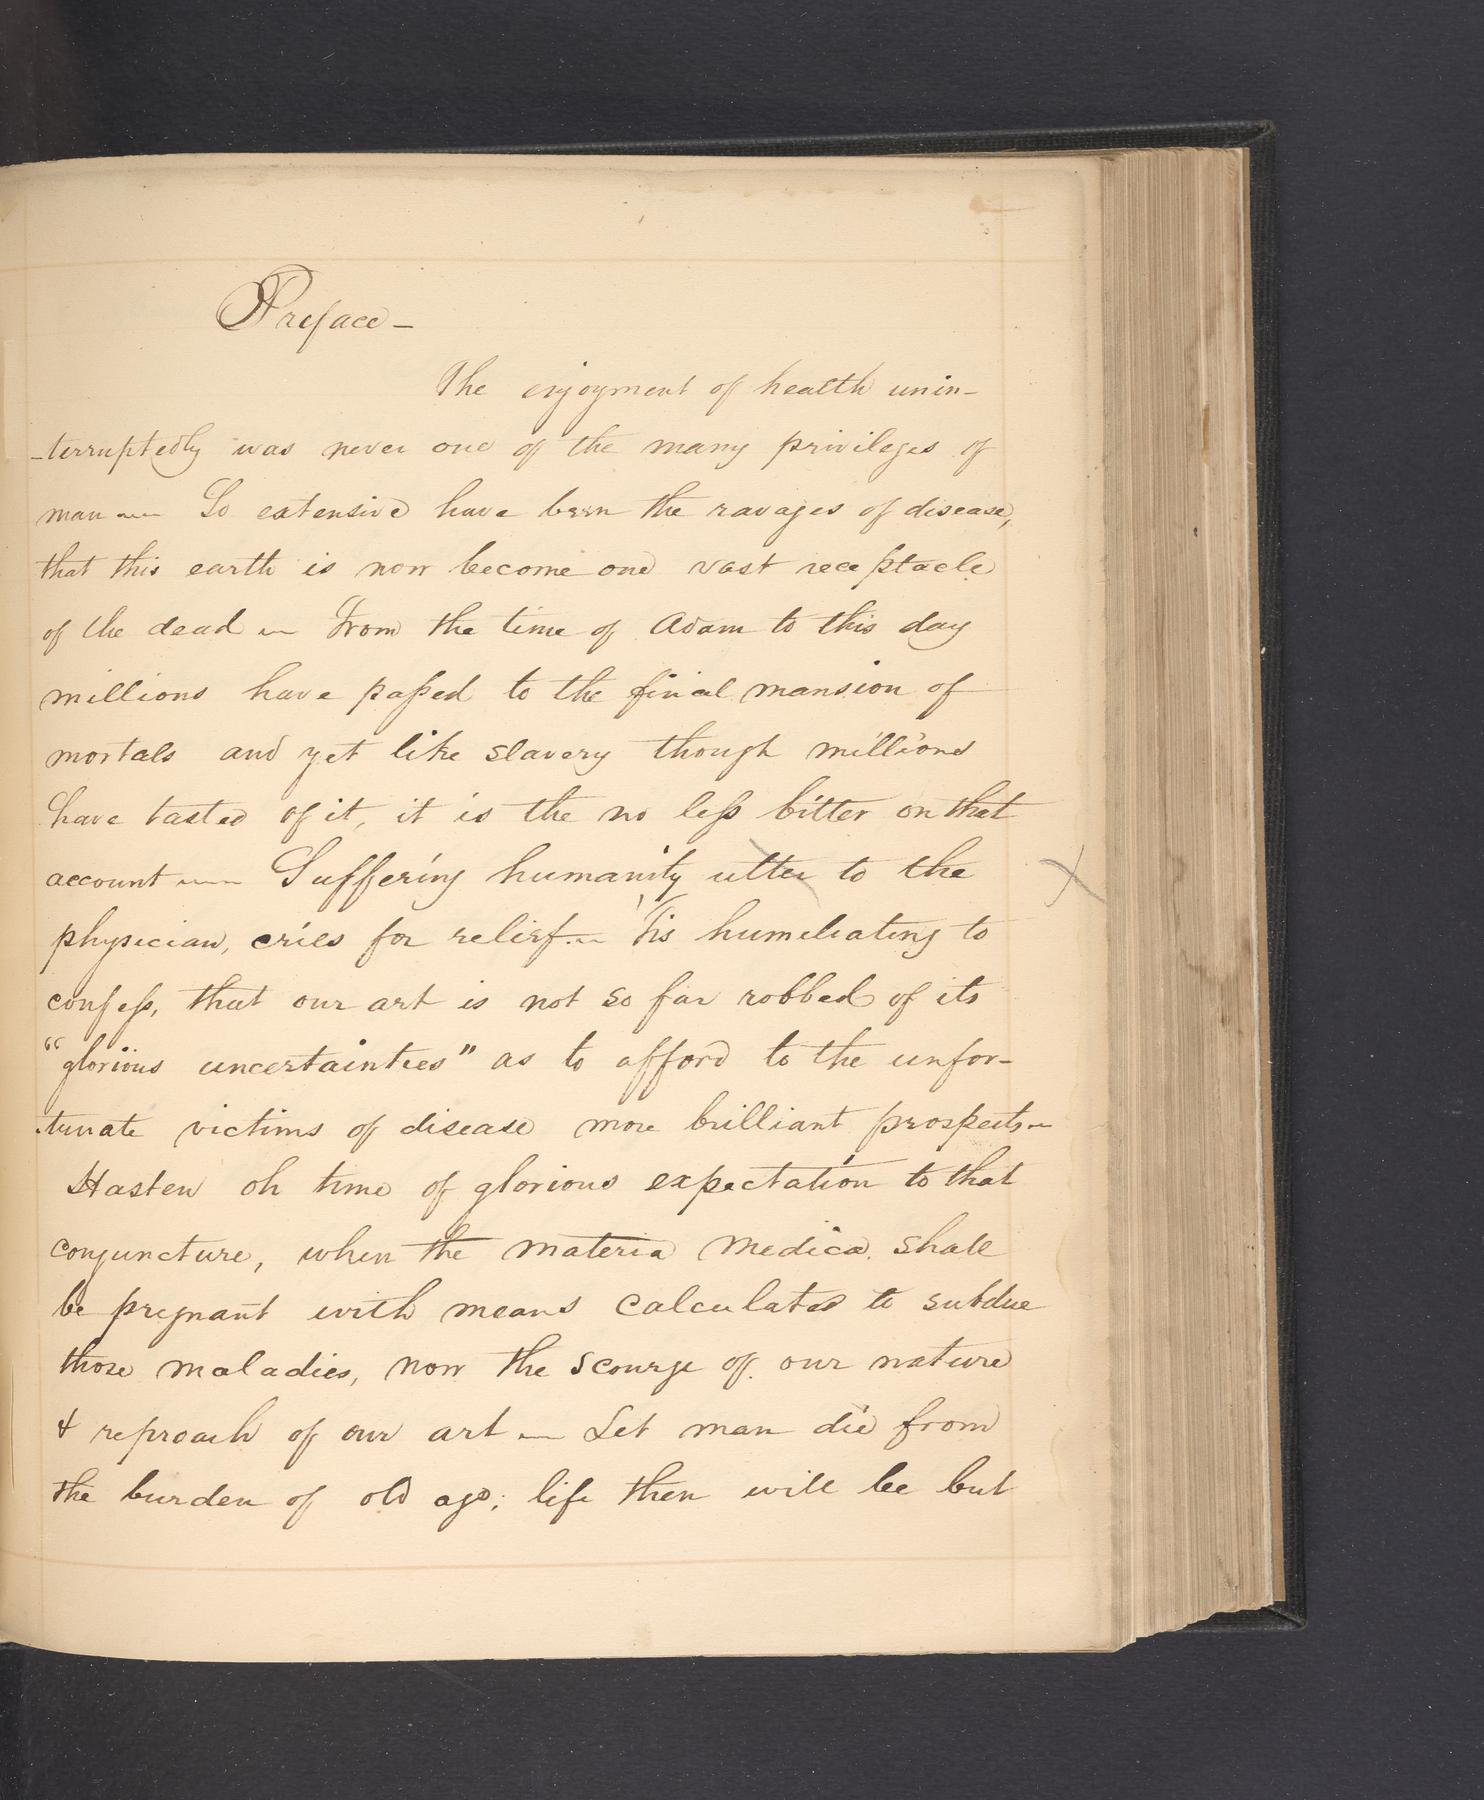 Preface –
The enjoyment of health unin-
-terruptedly was never one of the many privileges of
man — So extensive have been the ravages of disease,
that this earth is now become one vast receptacle
of the dead — From the time of Adam to this day
millions have passed to the final mansion of
mortals and yet like slavery though millions
have tasted of it, it is the no less bitter on that
account — Suffering humanity utter to the
physician, cries for relief — 'Tis humeliating to
confess, that our art is not so far robbed of its
"glorious uncertainties" as to afford to the unfor-
tunate victims of disease more brilliant prospects —
Hasten oh time of glorious expectation to that
conjuncture, when the materia medica shall
be pregnant with means calculated to subdue
those maladies, now the scourge of our nature
& reproach of our art — Let man die from
the burden of old age; life then will be but